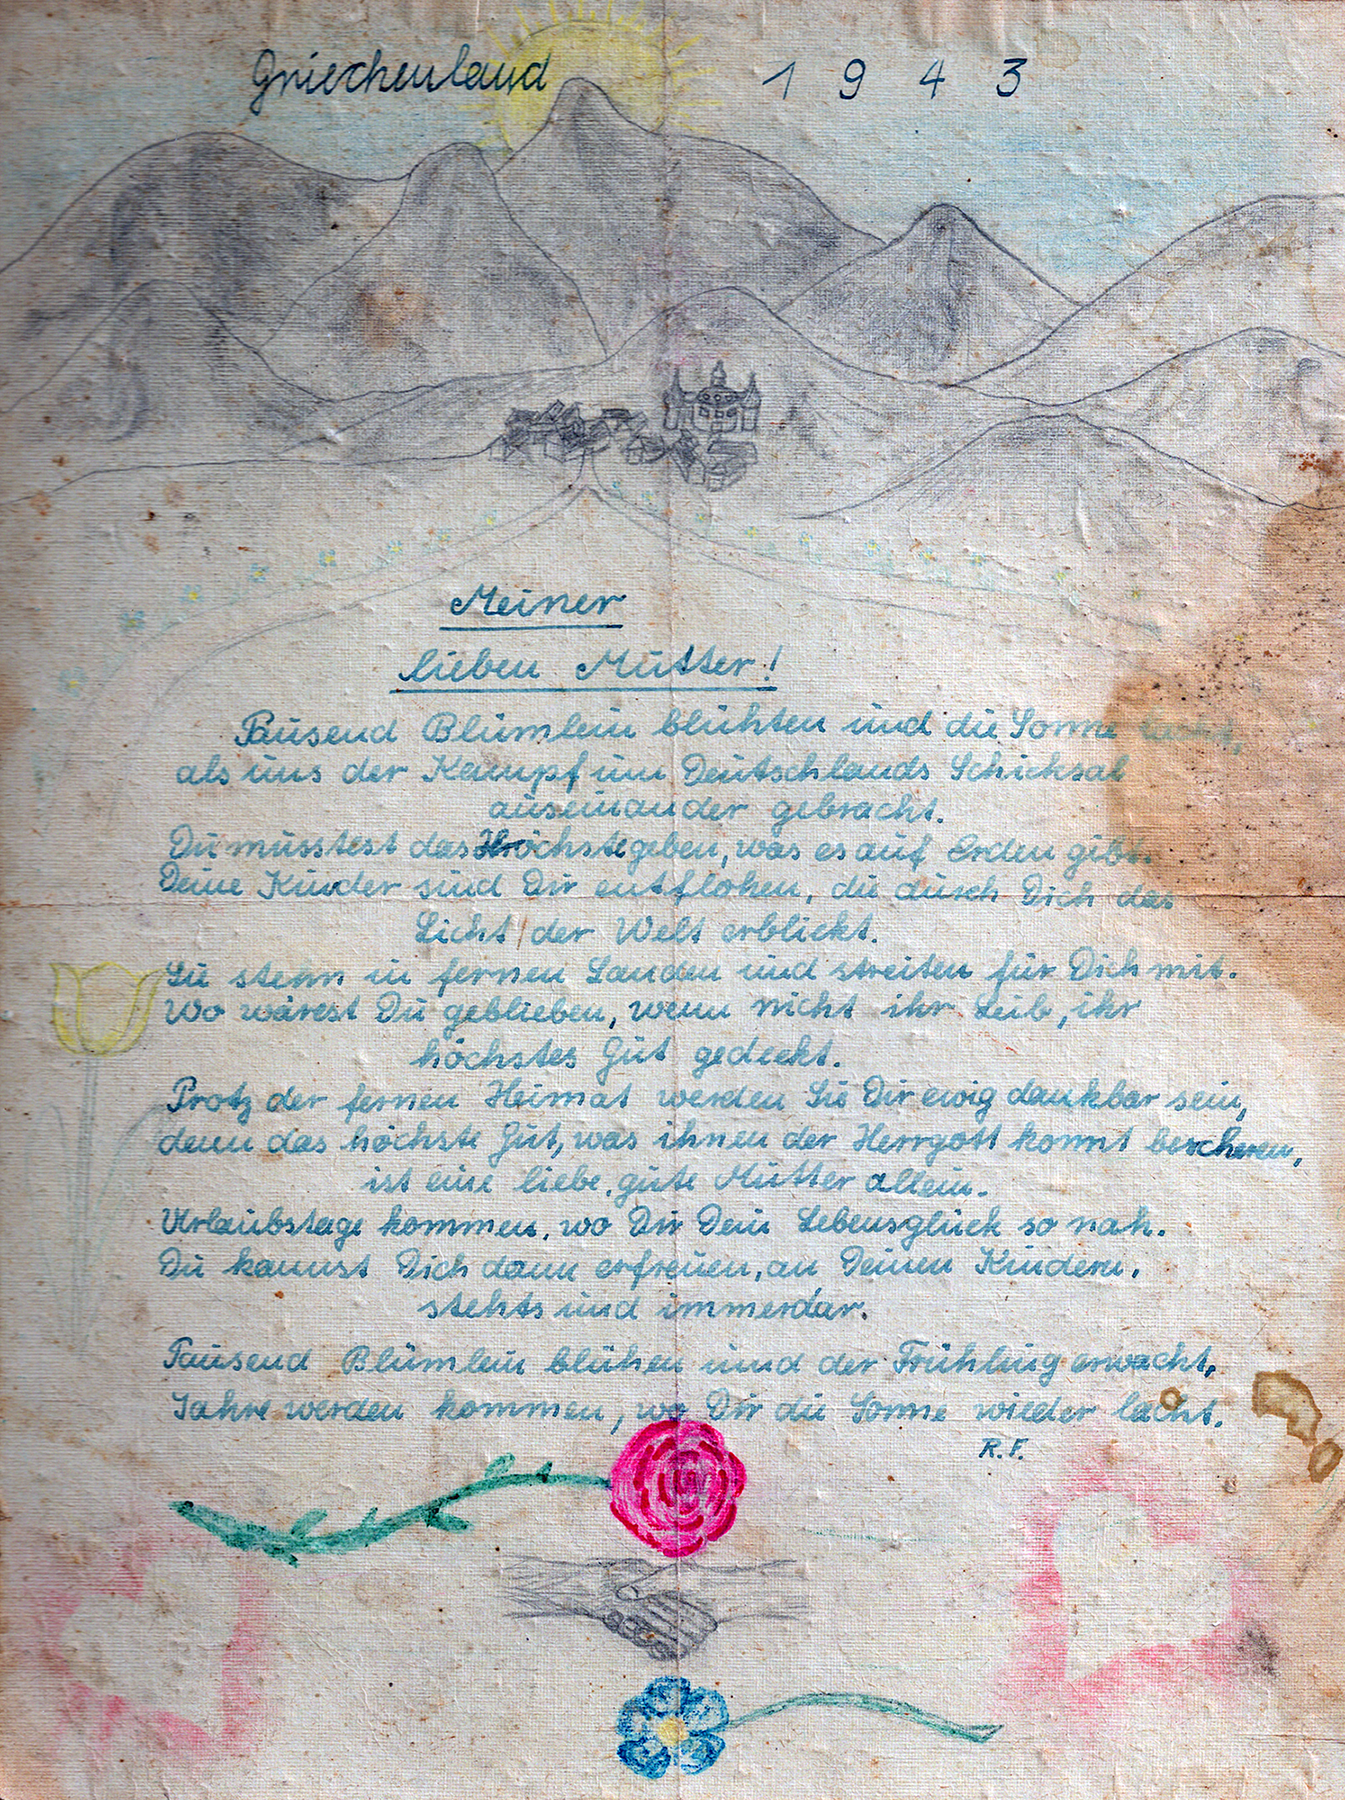 Griechenland 1943
Meiner
lieben Mutter!
Tausend Blümlein blühten und die Sonne lacht,
als uns der Kampf um Deutschlands Schicksal
auseinander gebracht.
Du musstest das Höchste geben, was es auf Erden gibt.
Deine Kinder sind Dir entflohen, die durch Dich das
Licht der Welt erblickt.
Sie stehn in fernen Landen und streiten für Dich mit.
Wo wärest Du geblieben, wenn nicht ihr Leib, ihr
höchstes Gut gedeckt.
Trotz der fernen Heimat werden Sie Dir ewig dankbar sein,
denn das höchste Gut, was ihnen der Herrgott konnt bescheren,
ist eine liebe, gute Mutter allein.
Urlaubstage kommen, wo Dir Dein Lebensglück so nah.
Du kannst Dich dann erfreuen, an Deinen Kindern,
stehts und immerdar.
Tausend Blümlein blühen und der Frühling erwacht,
Jahre werden kommen, wo Dir die Sonne wieder lacht.
R.F.